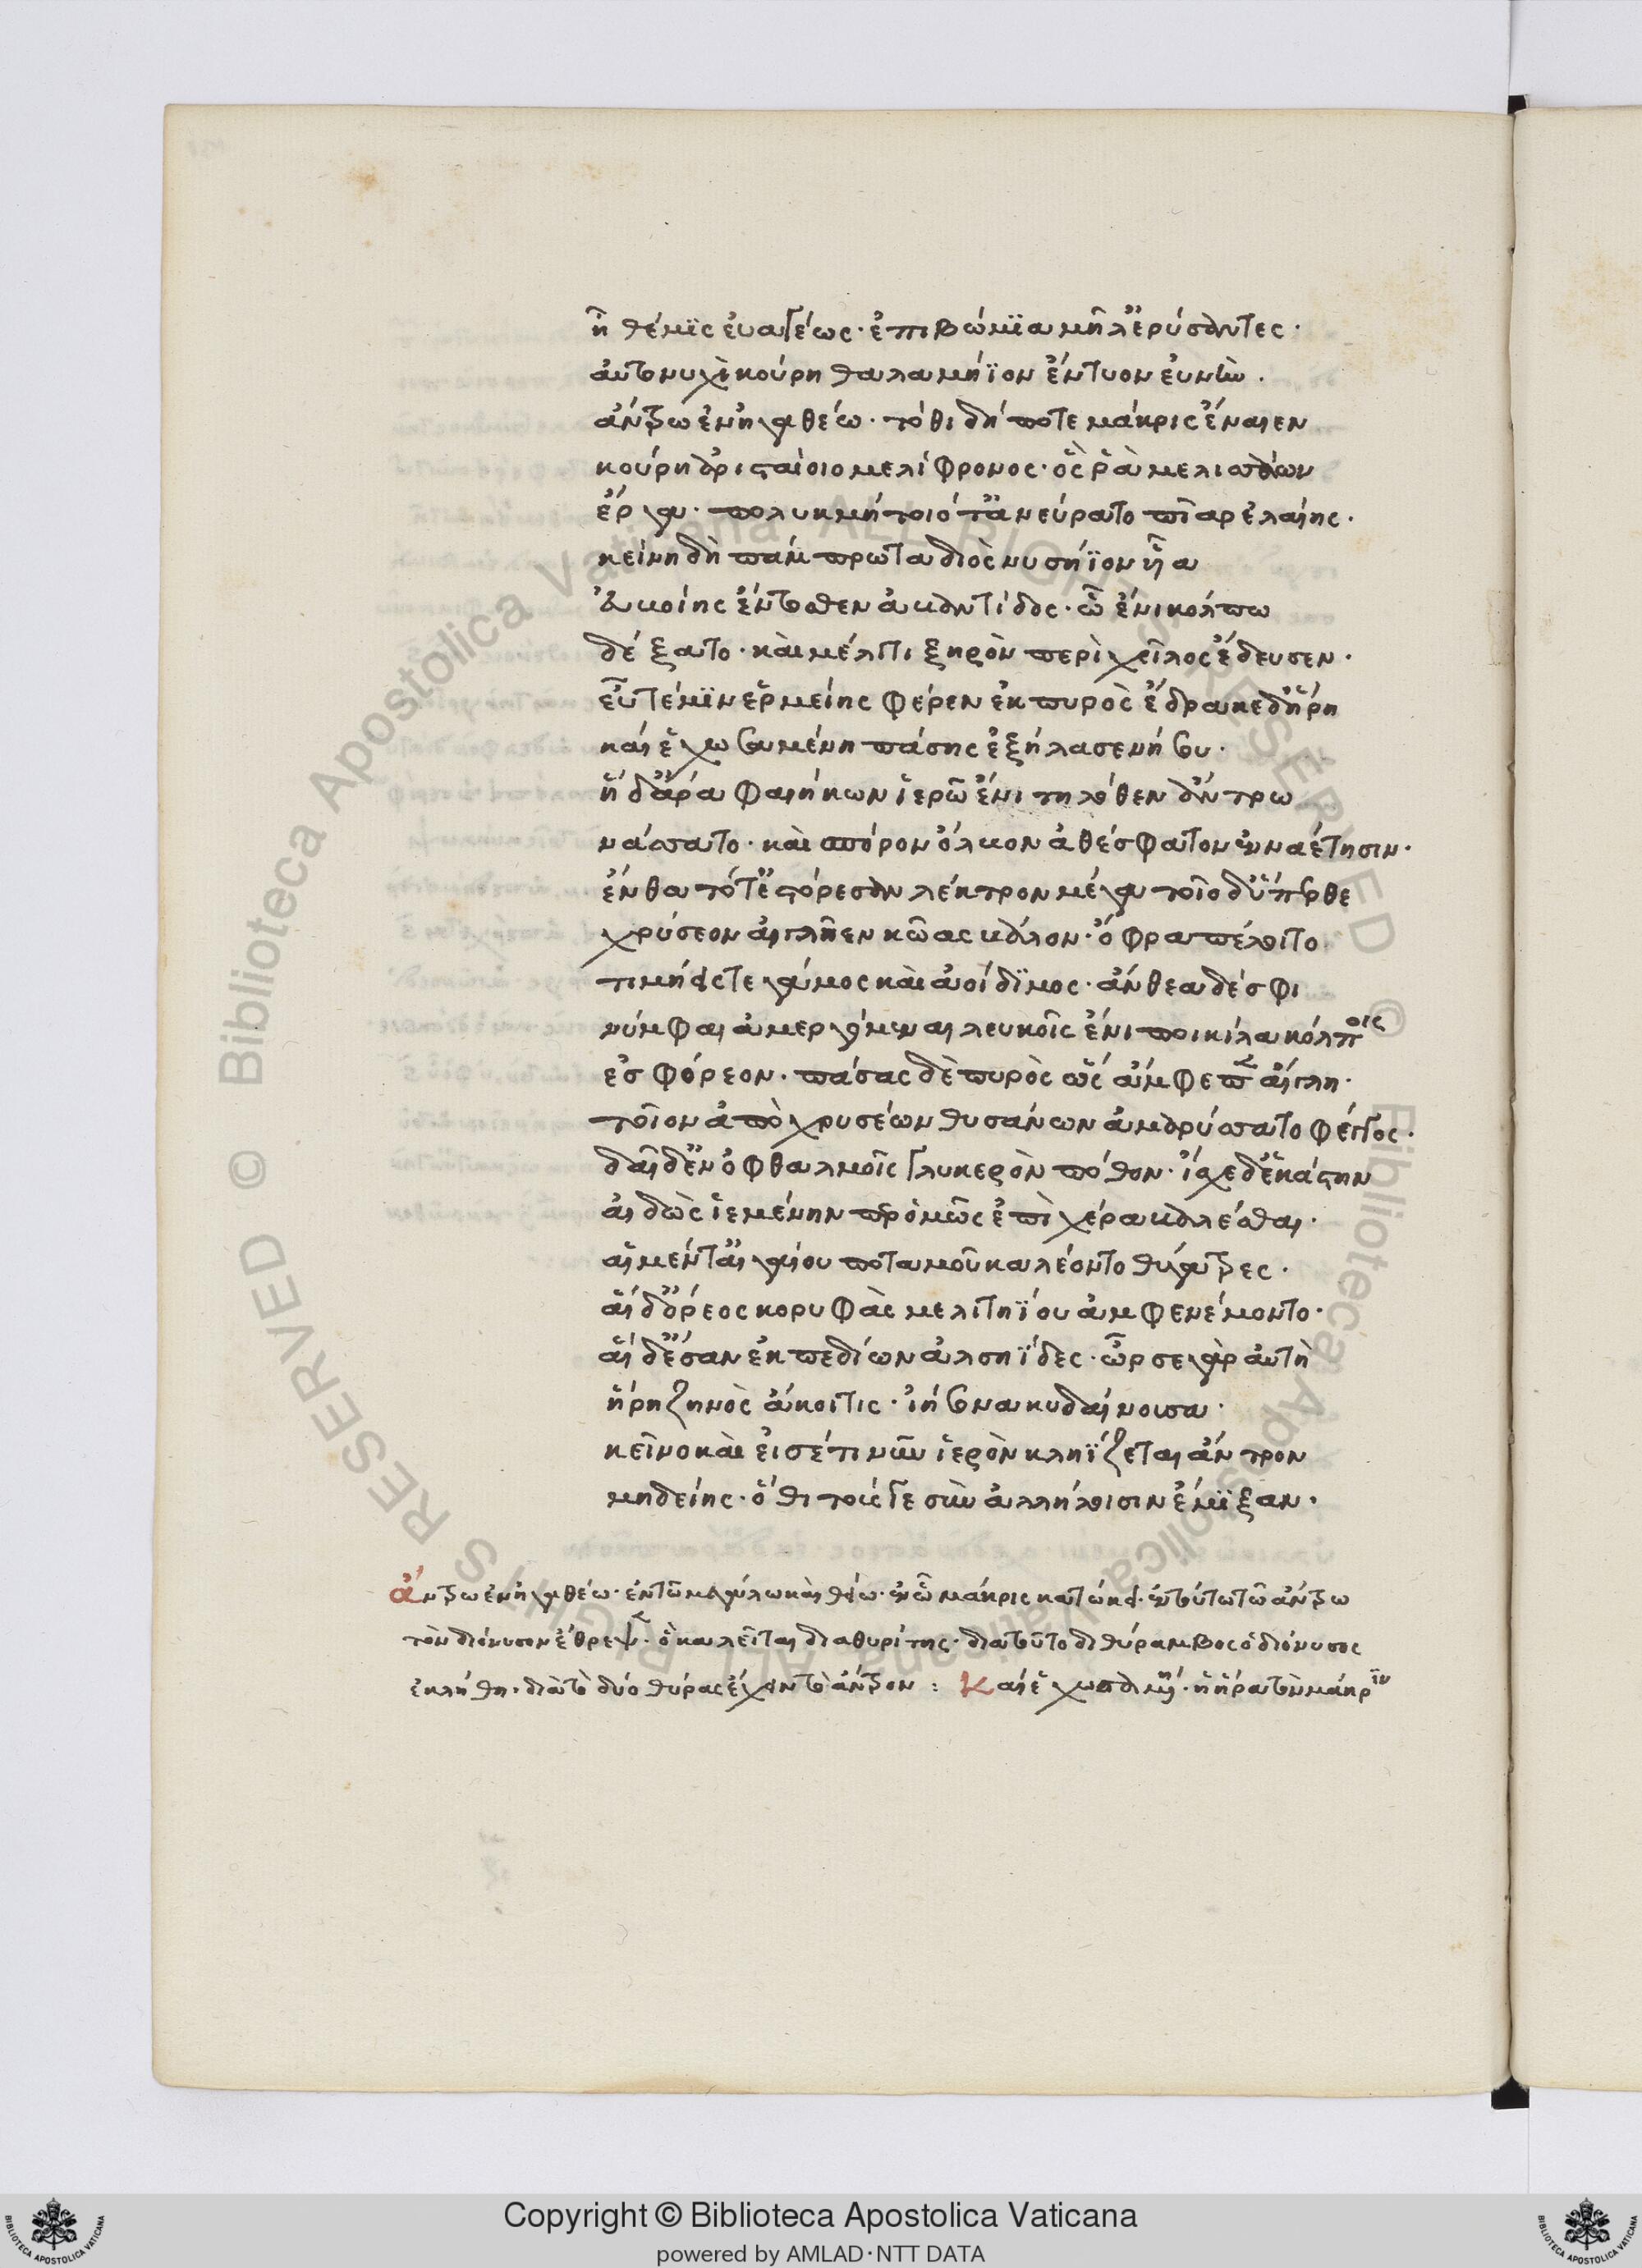 ἣ θέμϊς εὐαγέως· ἐπιβώμϊα μῆλ' ἐρύσαντες·
αὐτονυχὶ κούρη θαλαμήϊον ἔντυον εὐνὴν·
ἄντρω ἐν ἠγαθέω· τόθι δή ποτε μάκρις ἔναιεν
κούρη ἀρισταίοιο μελίφρονος· ὅς ῥὰ μελισσάων
ἔργα· πολυκμήτοιό τ' ἀνεύρατο πῖαρ ἐλαίης·
κείνη δὴ πάμπρωτα διὸς νυσήϊον ἦα
εὐβοίης ἔντοσθεν ἀβαντίδος· ὧ ἐνὶ κόλπω
δέξατο· καὶ μέλιτι ξηρὸν περὶ χεῖλος ἔδευσεν·
εὖτέ μϊν ἑρμείης φέρεν ἐκ πυρὸς ἔδρακε δ' ἥρη
καί ἑ χωσαμένη πάσης ἐξήλασε νήσου·
ἥ δ' ἄρα φαιήκων ἱερῶ ἐνὶ τηλόθεν ἄντρω
νάσσατο· καὶ πόρον ὄλβον ἀθέσφατον ἐνναέτησιν·
ἔνθα τότ' ἐστόρεσαν λέκτρον μέγα τοῖο δ' ὕπερθε
χρύσεον αἰγλῆεν κῶας βάλον· ὄφρα πέλοιτο
τιμήεις τε γάμος καὶ ἀοίδϊμος· ἄνθεα δέ σφι
νύμφαι ἀμεργόμεναι λευκοῖς ἐνὶ ποικίλα κόλποις
ἐσφόρεον· πάσας δὲ πυρὸς ὥς ἄμφεπεν αἴγλη·
τοῖον ἀπὸ χρυσέων θυσάνων ἀμαρύσσατο φέγγος·
δαῖε δ' ἐν ὀφθαλμοῖς γλυκερὸν πόθον· ἴσχε δ' ἑκάστην
αἰδὼς ἱεμένην περ ὁμῶς ἐπὶ χέρα βαλέσθαι·
αἱ μέν τ' αἰγαίου ποταμοῦ καλέοντο θύγατρες·
αἵ δ' ὄρεος κορυφὰς μελιτηΐου ἀμφενέμοντο·
αἵ δ' ἔσαν ἐκ πεδίων ἀλσηΐδες· ὦρσε γὰρ αὐτὴ
ἥρη ζηνὸς ἄκοιτις· ἰήσονα κυδαίνουσα·
κεῖνο καὶ εἰσέτι νῦν ἱερὸν κληΐζεται ἄντρον
μηδείης· ὅθι τούς γε σὺν ἀλλήλοισιν ἔμϊξαν·
ἄντρω ἐν ἠγαθέω· ἐν τῶ μεγάλω καὶ θείω· ἐν ὧ μάκρις κατώκει· ἐν τούτω τῶ ἄντρω
τὸν διόνυσον ἔθρεψεν· ὃ καλεῖται διαθυρίτης· διατοῦτο διθύραμβος ὁ διόνυσος
ἐκλήθη· διὰ τὸ δύο θύρας ἔχειν τὸ ἄντρον : Καί ἑ χωσαμένη· ἡ ἥρα τὴν μάκριν
Copyright © Biblioteca Apostolica Vaticana
powered by AMLAD·NTT DATA